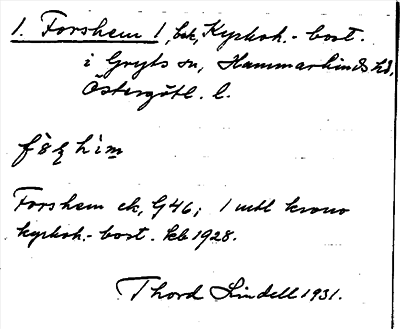 1. Forshem 1, bsk, Kyrkoh.-bost.
i Gryts sn, Hammarkinds hd,
Östergötl. l.
Forshem ek, G46; 1 mtl krono
kyrkoh.-bost. kb 1928.
Thord Lindell 1931.